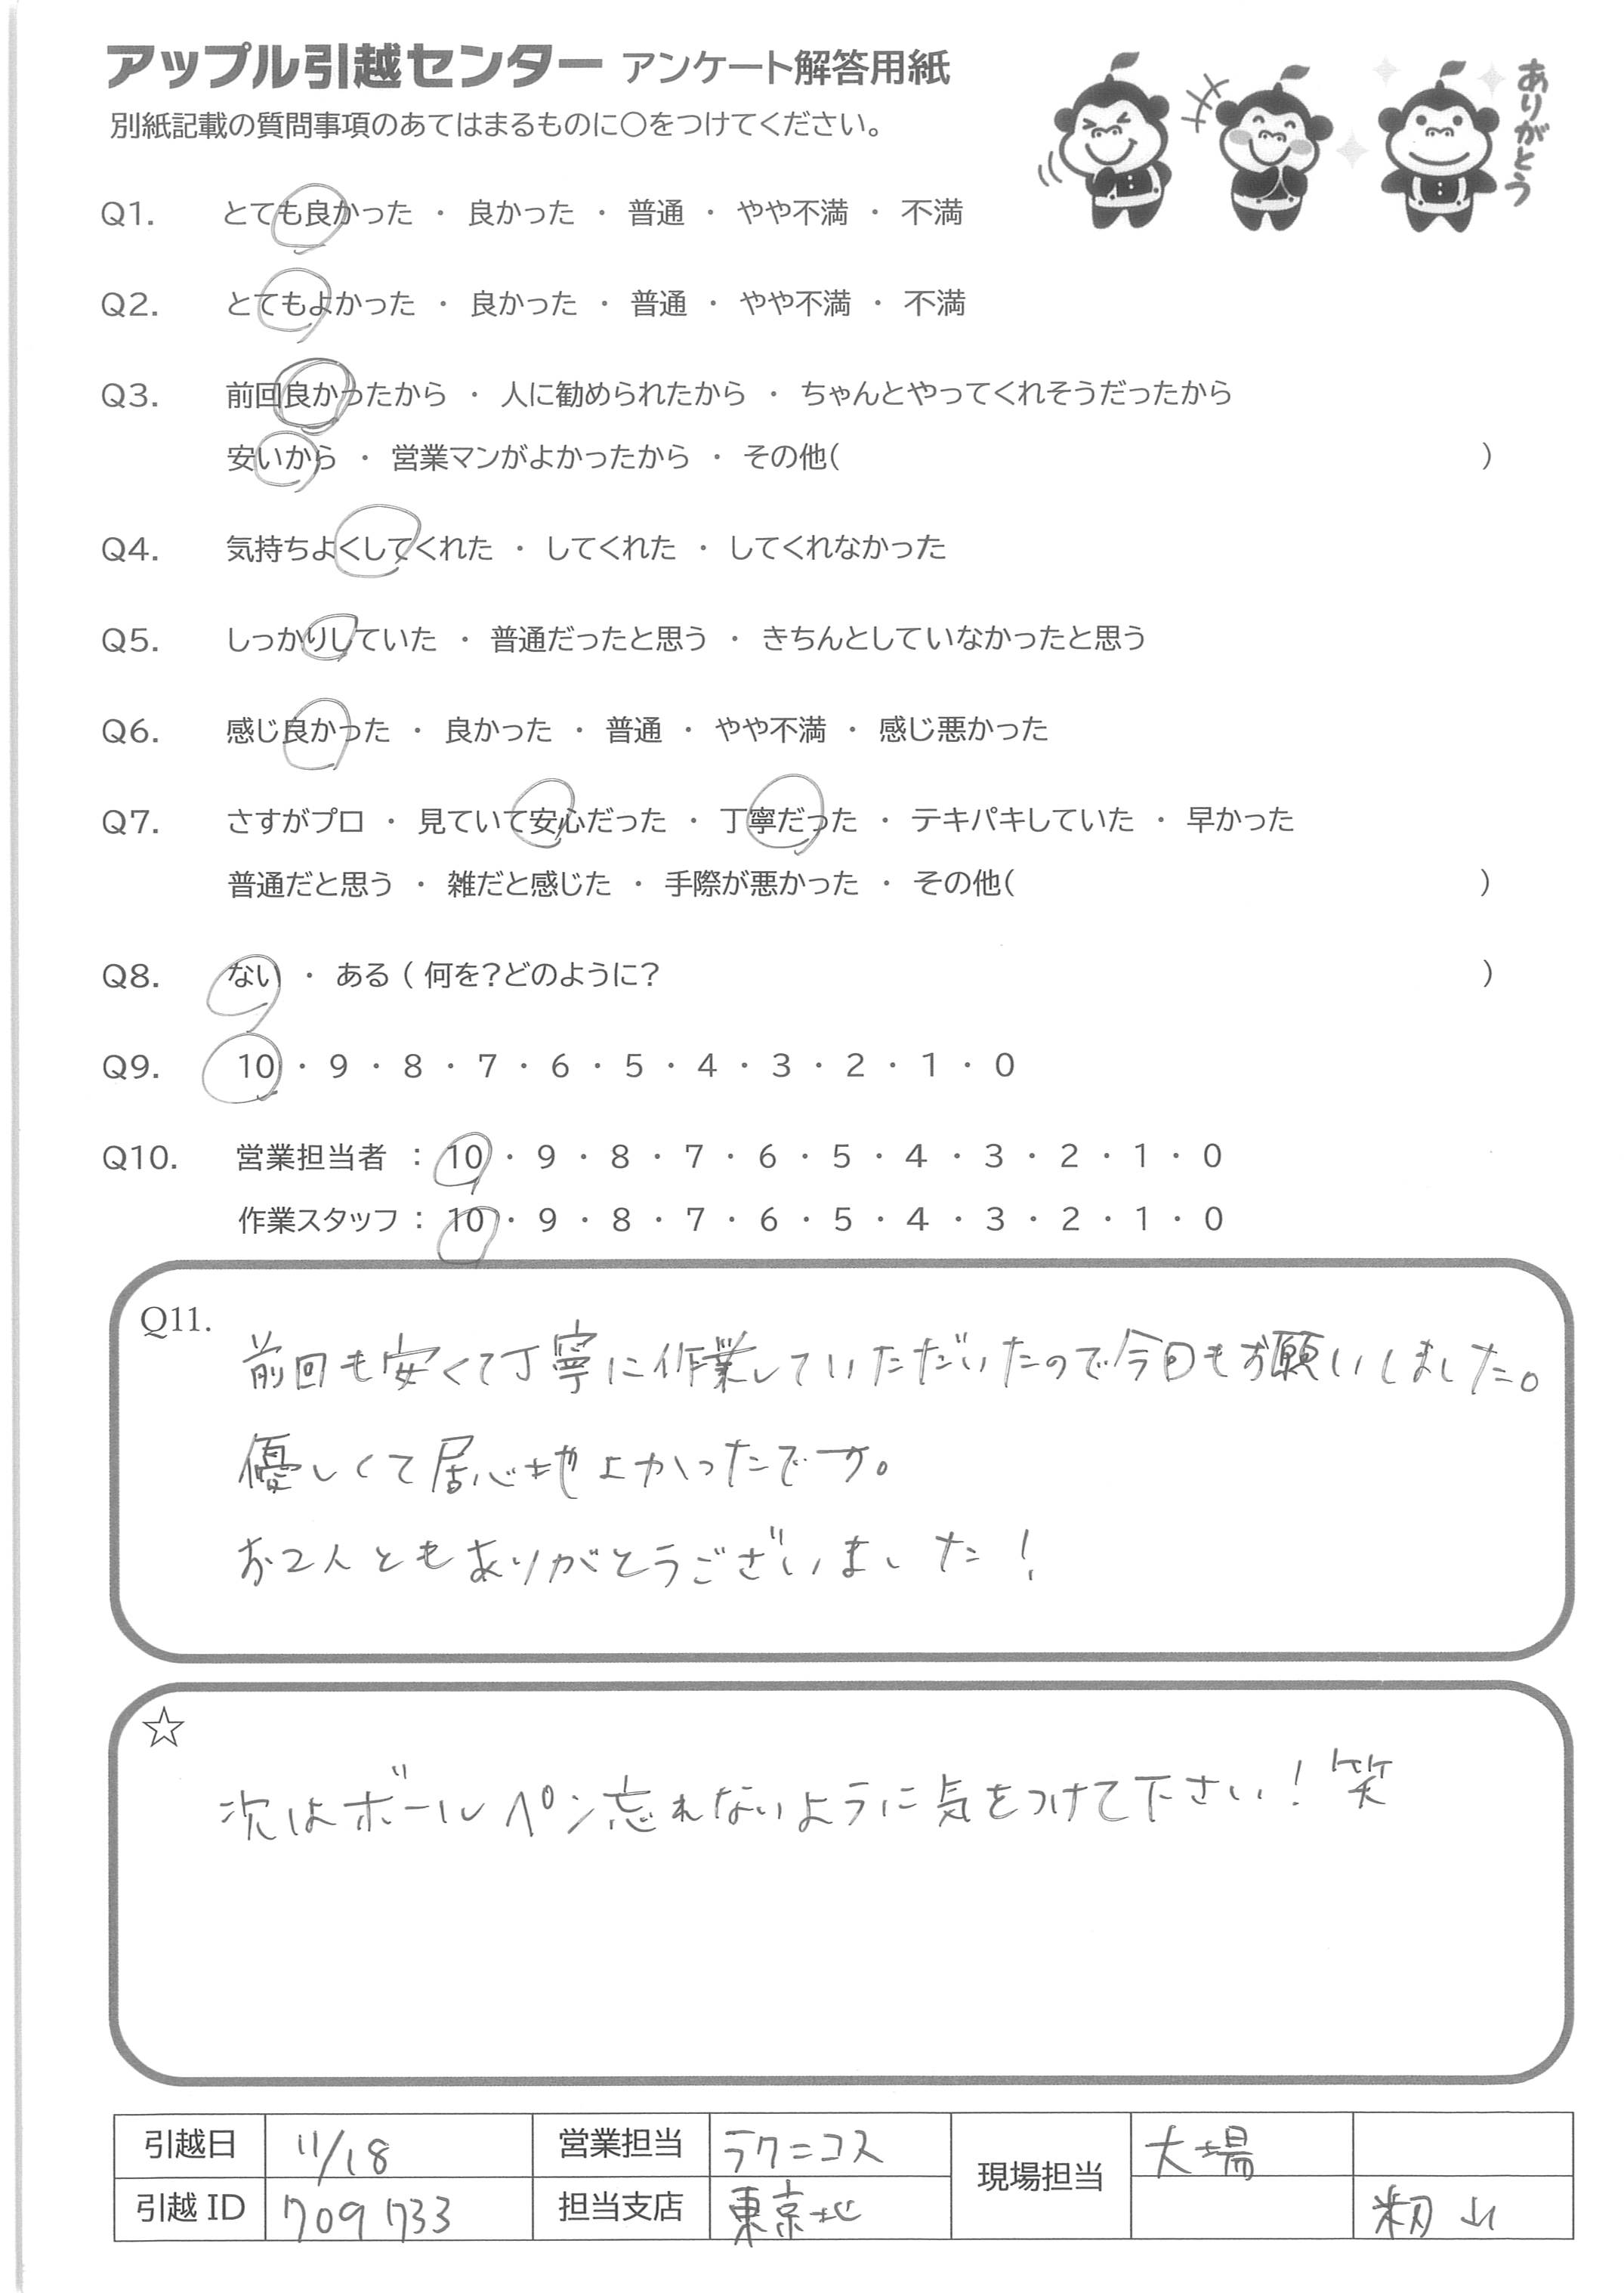 アップル引越センター アンケート解答用紙
別紙記載の質問事項のあてはまるものに○をつけてください。
ありがとう
Q1. とても良かった ・ 良かった ・ 普通 ・ やや不満 ・ 不満
Q2. とてもよかった ・ 良かった ・ 普通 ・ やや不満 ・ 不満
Q3. 前回良かったから ・ 人に勧められたから ・ ちゃんとやってくれそうだったから
安いから ・ 営業マンがよかったから ・ その他( )
Q4. 気持ちよくしてくれた ・ してくれた ・ してくれなかった
Q5. しっかりしていた ・ 普通だったと思う ・ きちんとしていなかったと思う
Q6. 感じ良かった ・ 良かった ・ 普通 ・ やや不満 ・ 感じ悪かった
Q7. さすがプロ ・ 見ていて安心だった ・ 丁寧だった ・ テキパキしていた ・ 早かった
普通だと思う ・ 雑だと感じた ・ 手際が悪かった ・ その他( )
Q8. ない ・ ある ( 何を?どのように? )
Q9. 10 ・ 9 ・ 8 ・ 7 ・ 6 ・ 5 ・ 4 ・ 3 ・ 2 ・ 1 ・ 0
Q10. 営業担当者 : 10 ・ 9 ・ 8 ・ 7 ・ 6 ・ 5 ・ 4 ・ 3 ・ 2 ・ 1 ・ 0
作業スタッフ : 10 ・ 9 ・ 8 ・ 7 ・ 6 ・ 5 ・ 4 ・ 3 ・ 2 ・ 1 ・ 0
Q11. 前回も安くて丁寧に作業していただいたので今回もお願いしました。
優しくて居心地よかったです。
お2人ともありがとうございました!
☆
次はボールペン忘れないように気をつけて下さい!笑
引越日 11/18 営業担当 ラクニコス 現場担当 大場
引越ID 709733 担当支店 東京北 籾山